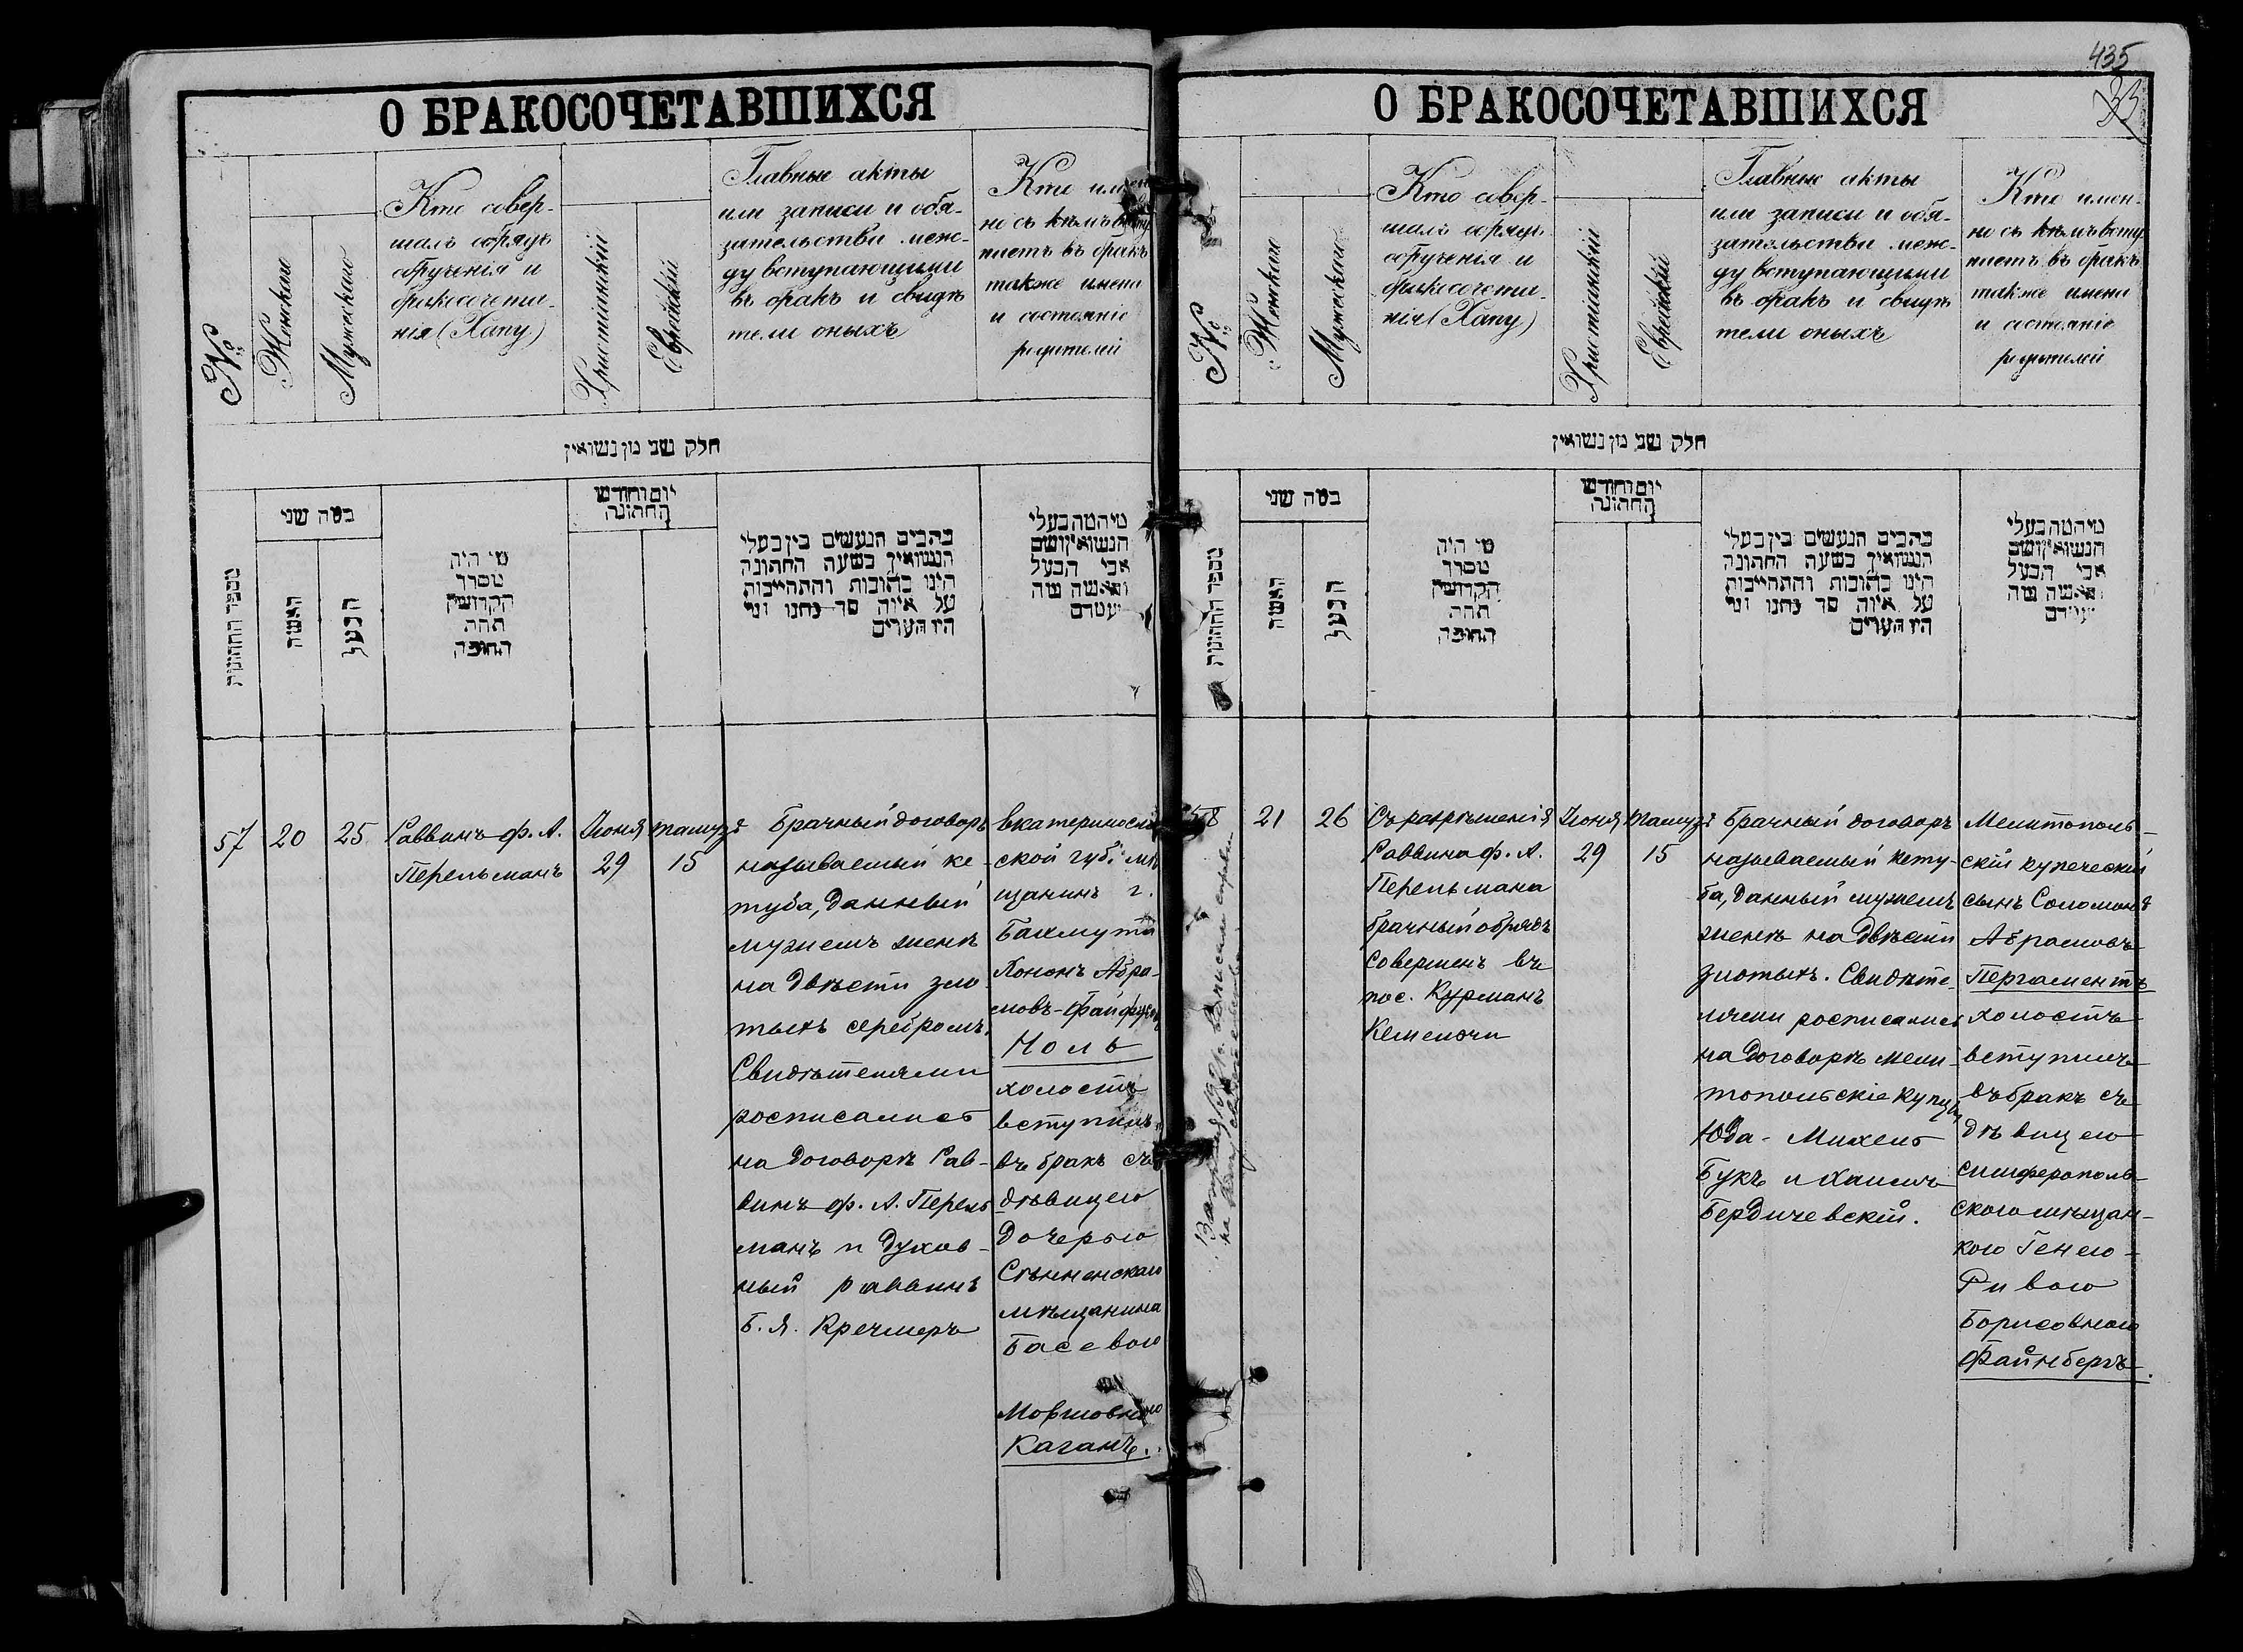 435
33
О БРАКОСОЧЕТАВШИХСЯ
№
Женскаго
Мужескаго
Кто совер-
шалъ обрядъ
обрученія и
бракосочета-
нія (Хапу)
Христіанскій
Еврейскій
Главные акты
или записи и обя-
зательства меж-
ду вступающими
въ бракъ и свидѣ
тели оныхъ
Кто имен
но съ кѣмъ всту
паетъ въ бракъ
также имена
и состояніе
родителей
חלק שני מן נשואין
מספר החתונות
כמה שני
האשה
הבעל
מי היה
מסדר
הקדושין
תחת
החופה
יום וחודש
החתונה
כתבים הנעשים בין בעלי
הנשואין בשעה החתונה
היינו כתובות והתחייבות
על איזה סך נתנו ומי
היו העדים
מי המה בעלי
הנשואין ושם
אבי הבעל
והאשה מה
מעמדם
57
20
25
Раввинъ ф. А.
Перельманъ
Іюня
29
Тамузъ
15
Брачный договоръ
называемый ке-
туба, данный
мужемъ женѣ
на двѣсти зло-
тыхъ серебромъ.
Свидѣтелями
росписались
на договорѣ Рав-
винъ ф. А. Перель
манъ и духов-
ный раввинъ
Б. Я. Кречмеръ
Екатеринослав
ской губ. мѣ
щанинъ г.
Бахмута
Хононъ Абра-
мовъ-Файфус
Ноль
холостъ
вступилъ
въ бракъ съ
дѣвицею
дочерью
Сѣнненскаго
мѣщанина
Басевою
Мовшовною
Каганъ.
О БРАКОСОЧЕТАВШИХСЯ
№
Женскаго
Мужескаго
Кто совер-
шалъ обрядъ
обрученія и
бракосочета-
нія (Хапу)
Христіанскій
Еврейскій
Главные акты
или записи и обя-
зательства меж-
ду вступающими
въ бракъ и свидѣ
тели оныхъ
Кто имен-
но съ кѣмъ всту
паетъ въ бракъ
также имена
и состояніе
родителей
חלק שני מן נשואין
מספר החתונות
כמה שני
האשה
הבעל
מי היה
מסדר
הקדושין
תחת
החופה
יום וחודש
החתונה
כתבים הנעשים בין בעלי
הנשואין בשעה החתונה
היינו כתובות והתחייבות
על איזה סך נתנו ומי
היו העדים
מי המה בעלי
הנשואין ושם
אבי הבעל
והאשה מה
מעמדם
58
21
26
Съ разрѣшенія
Раввина ф. А.
Перельмана
брачный обрядъ
совершенъ въ
пос. Курманъ
Кемельчи
Іюня
29
Тамузъ
15
Брачный договоръ
называемый кету-
ба, данный мужемъ
женѣ на двѣсти
злотыхъ. Свидѣте-
лями росписались
на договорѣ мели-
топольскіе купцы
Юда-Михель
Букъ и Хаимъ
Бердичевскій.
Мелитополь-
скій купеческій
сынъ Соломонъ
Абрамовъ
Пергаментъ
холостъ
вступилъ
въ бракъ съ
дѣвицею
симферополь-
скою мѣщан-
кою Генею-
Ривою
Борисовною
Файнбергъ.